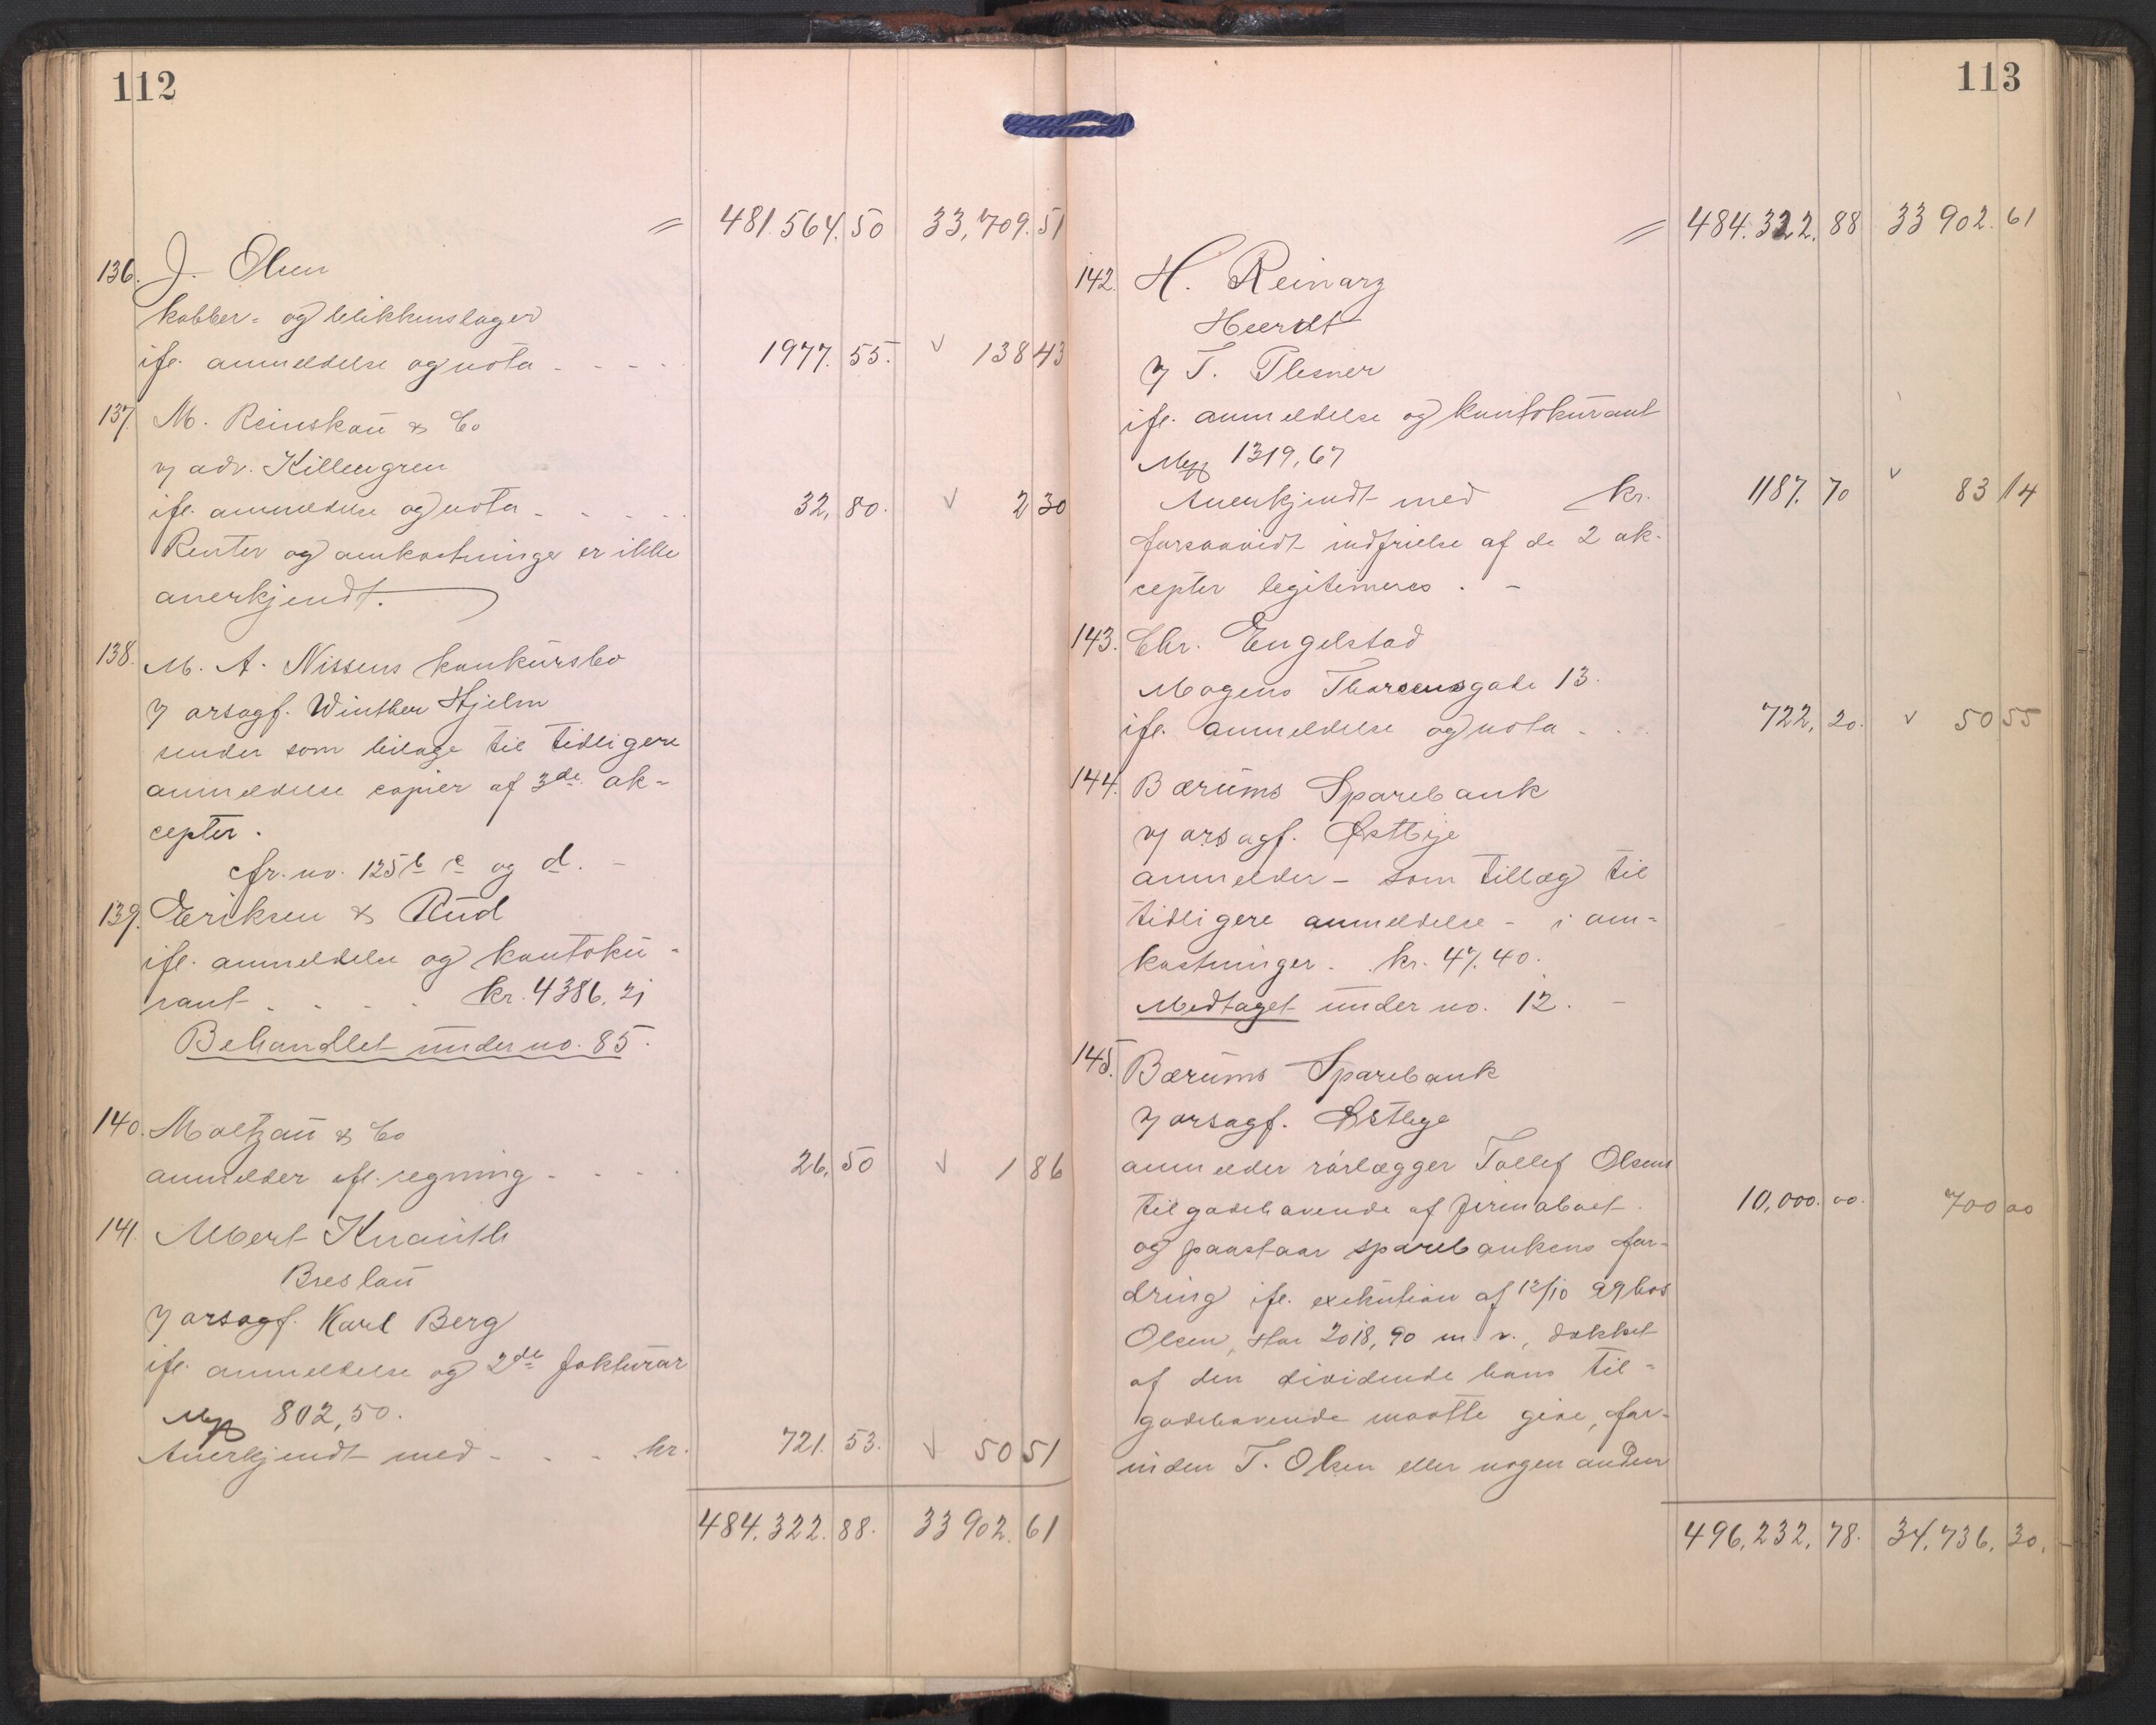 112
= 481.564.50 33,709.51
136. J. Olsen
kobber- og blikkenslager
ifl. anmeldelse og nota - - - - 1977.55. v 138 43
137. M. Reinskau & Co
v/ adv. Killengren
ifl. anmeldelse og nota - - - - 32,80. v 2 30
Renter og omkostninger er ikke
anerkjendt.
138. M. A. Nissens konkursbo
v/ orsagf. Winther Hjelm
sender som bilage til tidligere
anmeldelse copier af 3de ak-
cepter.
cfr. no. 125 b c og d. -
139. Eriksen & Rud
ifl. anmeldelse og kontoku-
rant - - - - kr. 4386.21
Behandlet under no. 85.
140. Moltzau & Co
anmelder ifl. regning - - - - 26,50 v 1 86
141. Albert Knauth
Breslau
v/ orsagf. Karl Berg
ifl. anmeldelse og 2de fakturar
Mk 802,50.
Anerkjendt med - - - kr. 721.53. v 50 51
484.322.88. 33 902.61
113
= 484.322.88 33 902.61
142. H. Reinarz
Heerdt
v/ T. Plesner
ifl. anmeldelse og kontokurant
Mk 1319,67
Anerkjendt med kr. 1187.70 v 83 14
forsaavidt indfrielse af de 2 ak-
cepter legitimeres. -
143. Chr. Engelstad
Mogens Thorsensgade 13.
ifl. anmeldelse og nota - - 722,20. v 50 55
144. Bærums Sparebank
v/ orsagf. Østbye
anmelder - som tillæg til
tidligere anmeldelse - i om-
kostninger - kr. 47.40.
Medtaget under no. 12. -
145. Bærums Sparebank
v/ orsagf. Østbye
anmelder rørlægger Tollef Olsens
tilgodehavende af firmaboet. 10,000.00. 700 00
og paastaar sparebankens for-
dring ifl. exekution af 12/10 99 hos
Olsen, stor 2018,90 m. r., dækket
af den dividende hans til-
godehavende maatte give, for-
inden T. Olsen eller nogen anden
496,232,78. 34,736,30.